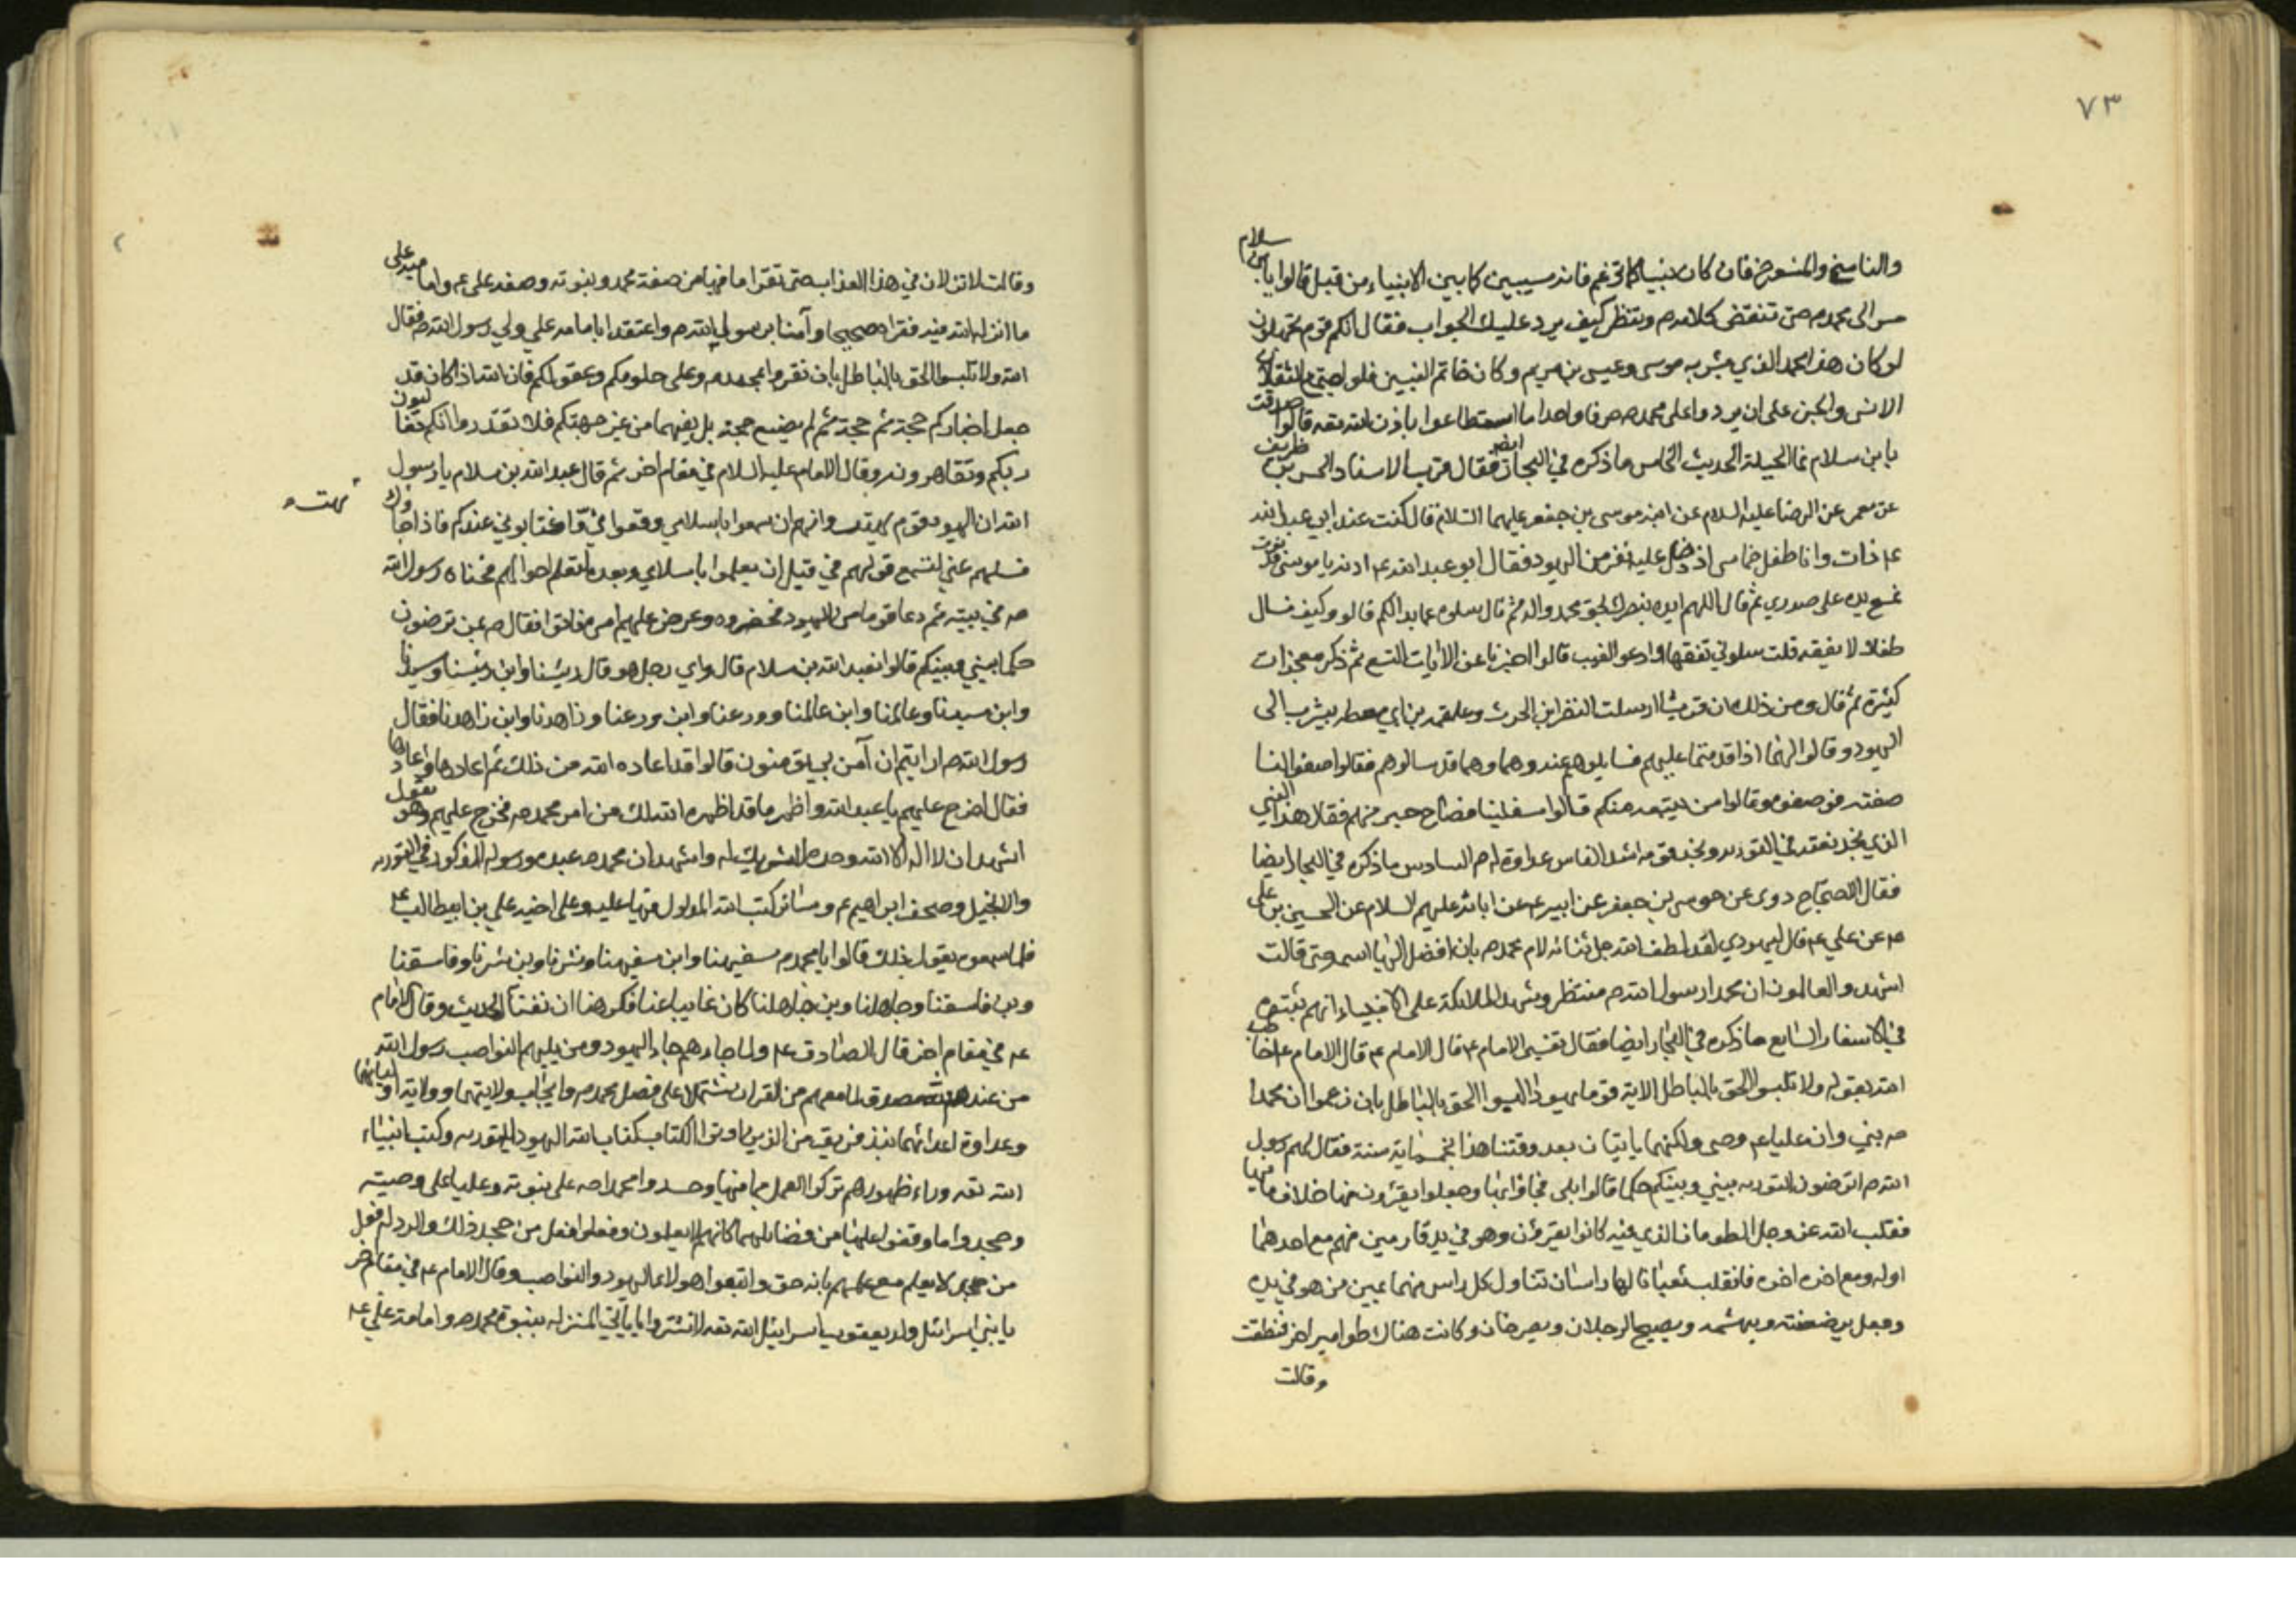 ٧٣
والناسخ والمنسوخ فان كان نبيا كما تزعم فانه سيبين كما بين الانبياء من قبل قالوا يابن سلام
سر الى محمد ص حتى تنقض كلامه وتنظر كيف يرد عليك الجواب فقال انكم قوم تجهلون
لو كان هذا محمد الذي بشر به موسى وعيسى بن مريم وكان خاتم النبيين فلو اجتمع الثقلان
الانس والجن على ان يردوا على محمد ص حرفا واحدا ما استطاعوا باذن الله تعه قالوا صدقت
يا بن سلام فما الحيلة الحديث الخامس ما ذكره في البحار ايضا فقال قرب الاسناد الحسن بن ظريف
عن معمر عن الرضا عليه السلام عن ابيه موسى بن جعفر عليهما السلام قال كنت عند ابي عبد الله
ع ذات وانا طفل خماسي اذ دخل عليه نفر من اليهود فقال ابو عبد الله ع ادنه يا موسى فدنوت
فمسح يده على صدري ثم قال اللهم ايده بنصرك بحق محمد واله ثم قال سلوه عما بدا لكم قالو وكيف نسال
طفلا لا يفقه قلت سلوني تفقها ودعوا العنت قالوا اخبرنا عن الايات التسع ثم ذكر معجزات
كثيرة ثم قال ومن ذلك ان قريشا ارسلت النضر ابن الحرث وعلقمه بن ابي معيط بيثرب الى
اليهود وقالوا لهما اذا قدمتما عليهم فسايلوهم عنه وهما قد سالوهم فقالوا صفوا لنا
صفته فوصفوه وقالوا من تبعه منكم قالوا سفلتنا فصاح حبر منهم فقال هذا النبي
الذي نجد نعته في التوريه ونجد قومه اشد الناس عداوة له ص السادس ما ذكره في البحار ايضا
فقال الاحتجاج روى عن موسى بن جعفر عن ابيه ع عن ابائه عليهم السلام عن الحسين بن على
ع عن علي ع قال ليهودي لقد لطف الله جل ثنائه لام محمد ص بان افضل اليها اسمه حتى قالت
اشهد والعالمون ان محمدا رسول الله ص منتظر وشهد الملائكة على الانبياء انهم اثبتوه
في الاسفار السابع ما ذكره في البحار ايضا فقال تفسير الامام ع قال الامام ع خاطب
الله بقوله ولا تلبسوا الحق بالباطل الاية قوما يهودا البسوا الحق بالباطل بان زعموا ان محمدا
ص نبي وان عليا ع وصى ولكنهما ياتيان بعد وقتنا هذا بخمسماية سنة فقال لهم رسول
الله ص اترضون التوريه بيني وبينكم حكما قالوا بلى فجاؤا بها وجعلوا يقرؤن منها خلاف ما فيها
فقلب الله عز وجل الطومار الذي منه كانوا يقرؤن وهو في يد قارئين منهم مع احدهما
اوله ومع اخره اخره فانقلب ثعبانا لها راسان تناول كل راس منهما يمين من هو في يده
وجعل يرضضته ويهشمه ويصيح الرجلان ويصرخان وكانت هناك طوامير اخر فنطقت
وقالت
وقالت لا تزلان في هذا العذاب حتى تقرا ما فيها من صفة محمد ونبوته وصفه على ع وامامته على
ما انزل الله فيه فقراه صحيحا وآمنا برسول الله ص واعتقدا بامامه علي ولي رسول الله ص فقال
الله ولا تلبسوا الحق بالباطل بان تقروا بمحمد ص وعلى حلومكم وعقولكم فان الله اذا كان قد
جعل اخباركم حجة ثم حجة ثم لم يضيع حجته بل يقيمها من غير جهتكم فلا تقدروا انكم تغالبون
ربكم وتقاهرونه وقال الامام عليه السلام في مقام اخر ثم قال عبد الله بن سلام يا رسول
الله ان اليهود قوم بهت وانهم ان سمعوا باسلامي وقعوا في فاختابوني عندكم فاذا جاؤك بهت
فسلهم عني لتسمع قولهم في قبل ان يعلموا باسلامي وبعده لتعلم احوالهم فخباه رسول الله
ص في بيته ثم دعا قوما من اليهود فحضروه وعرض عليهم امره فابوا فقال ص بمن ترضون
حكما بيني وبينكم قالوا بعبد الله بن سلام قال واي رجل هو قال رئيسنا وابن رئيسنا وسيدنا
وابن سيدنا وعالمنا وابن عالمنا وورعنا وابن ورعنا وزاهدنا وابن زاهدنا فقال
رسول الله ص ارايتم ان آمن بي اتؤمنون قالوا قد اعاده الله من ذلك ثم اعادها فاعادوها
فقال اخرج عليهم يا عبد الله واظهر ما قد اظهره الله لك من امر محمد ص فخرج عليهم وهو يقول
اشهد ان لا اله الا الله وحده لا شريك له واشهد ان محمد ص عبده ورسوله المذكور في التوريه
والانجيل وصحف ابراهيم ع وسائر كتب الله المدلول فيها عليه وعلى اخيه علي بن ابيطالب ع
فلما سمعوه يقول ذلك قالوا يا محمد ص سفيهنا وابن سفيهنا وشرنا وبن شرنا وفاسقنا
وبن فاسقنا وجاهلنا وبن جاهلنا كان غايبا عنا فكرهنا ان نغتابه الحديث وقال الامام
ع في مقام اخر قال الصادق ع ولما جاءهم جاء اليهود ومن يليهم النواصب رسول الله
من عند الله مصدق لما معهم من القران مشتملا على فضل محمد ص وايجاب ولايتهما وولاية اوليائهما
وعداوة اعدائهما نبذ فريق من الذين اوتوا الكتاب كتاب الله اليهود التوريه وكتب انبياء
الله تعه وراء ظهورهم تركوا العمل بما فيها وحسدوا محمدا ص على نبوته وعليا على وصيته
وجحدوا ما وقفوا عليها من فضايلهما كانهم لا يعلمون وفعلوا فعل من جحد ذلك والرد له فعل
من جحد لا يعلم مع علمهم بانه حق واتبعوا هولاء اليهود والنواصب وقال الامام ع في مقام اخر
يا بني اسرائيل ولد يعقوب اسرائيل الله تعه لا تشتروا باياتي المنزله بنبوة محمد ص وامامة علي ع